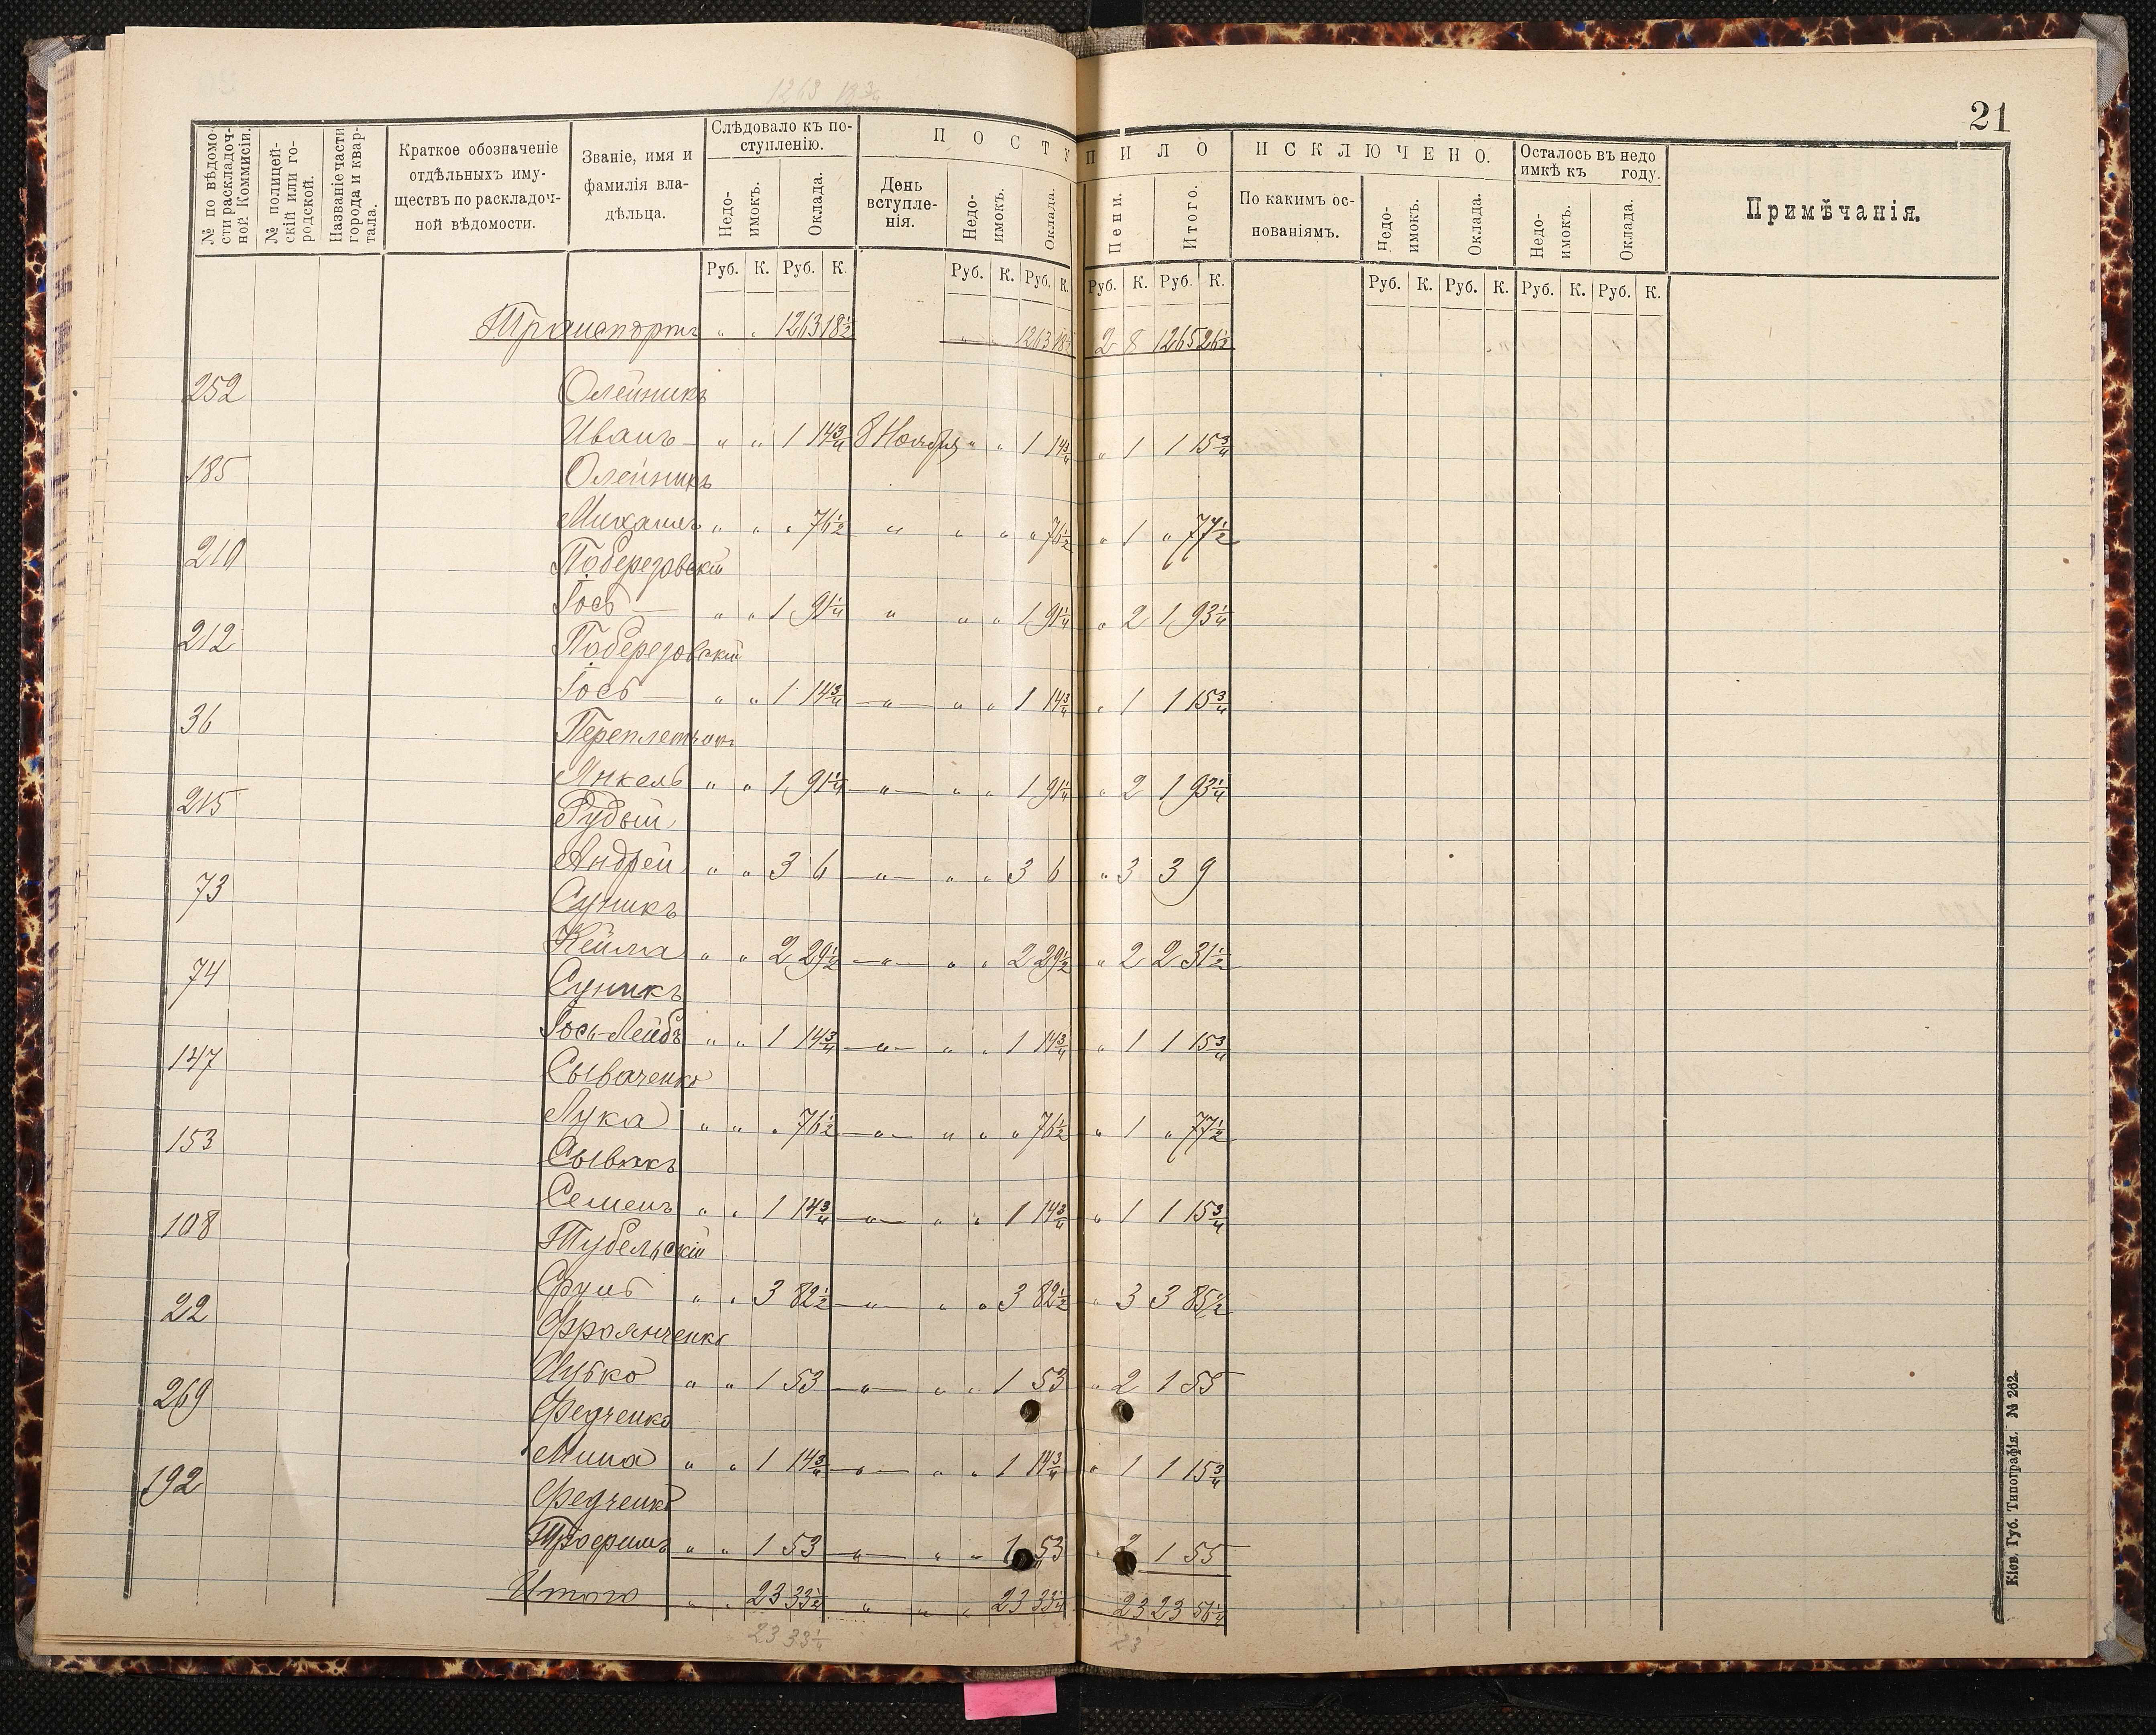 1263 18 3/4
21
№ по вѣдомо-
сти раскладоч-
ной Коммисіи.
№ полицей-
скій или го-
родской.
Названіе части
города и квар-
тала.
Краткое обозначеніе
отдѣльныхъ иму-
ществъ по раскладоч-
ной вѣдомости.
Званіе, имя и
фамилія вла-
дѣльца.
Слѣдовало къ по-
ступленію.
Недо-
имокъ.
Оклада.
ПОСТУПИЛО
День
вступле-
нія.
Недо-
имокъ.
Оклада.
Пени.
Итого.
ИСКЛЮЧЕНО.
По какимъ ос-
нованіямъ.
Недо-
имокъ.
Оклада.
Осталось въ недо
имкѣ къ году.
Недо-
имокъ.
Оклада.
Примѣчанія.
Руб. К. Руб. К. Руб. К. Руб. К. Руб. К. Руб. К. Руб. К. Руб. К. Руб. К. Руб. К.
Транспортъ " " 1263 18 1/2 " " 1263 18 1/2 2 8 1265 26 1/2
252 Олейникъ
Иванъ " " 1 14 3/4 8 Ноября " " 1 14 3/4 " 1 1 15 3/4
185 Олейникъ
Михаилъ " " " 76 1/2 " " " " 76 1/2 " 1 " 77 1/2
210 Поберезовскій
Іось — " " 1 91 1/4 " " " 1 91 1/4 " 2 1 93 1/4
212 Поберезовскій
Іось — " " 1 14 3/4 — " — " " 1 14 3/4 " 1 1 15 3/4
36 Переплетчикъ
Янкель " " 1 91 1/4 — " — " " 1 91 1/4 " 2 1 93 1/4
215 Рудый
Андрей " " 3 6 — " — " " 3 6 " 3 3 9
73 Суникъ
Кейла " " 2 29 1/2 — " — " " 2 29 1/2 " 2 2 31 1/2
74 Суникъ
Іось-Лейбъ " " 1 14 3/4 — " — " " 1 14 3/4 " 1 1 15 3/4
147 Сываченко
Лука " " " 76 1/2 — " — " " " 76 1/2 " 1 " 77 1/2
153 Сывакъ
Семенъ " " 1 14 3/4 — " — " " 1 14 3/4 " 1 1 15 3/4
108 Тубельскій
Сруль " " 3 82 1/2 — " — " " 3 82 1/2 " 3 3 85 1/2
22
" " 1 53 — " — " " 1 53 " 2 1 55
269 Федченко
Мина " " 1 14 3/4 — " — " " 1 14 3/4 " 1 1 15 3/4
192 Федченко
Трофимъ " " 1 53 — " — " " 1 53 " 2 1 55
Итого " " 23 33 1/4 " " " 23 33 1/4 23 23 56 1/4
23 33 1/4 23
Кіев. Губ. Типографія. № 262.